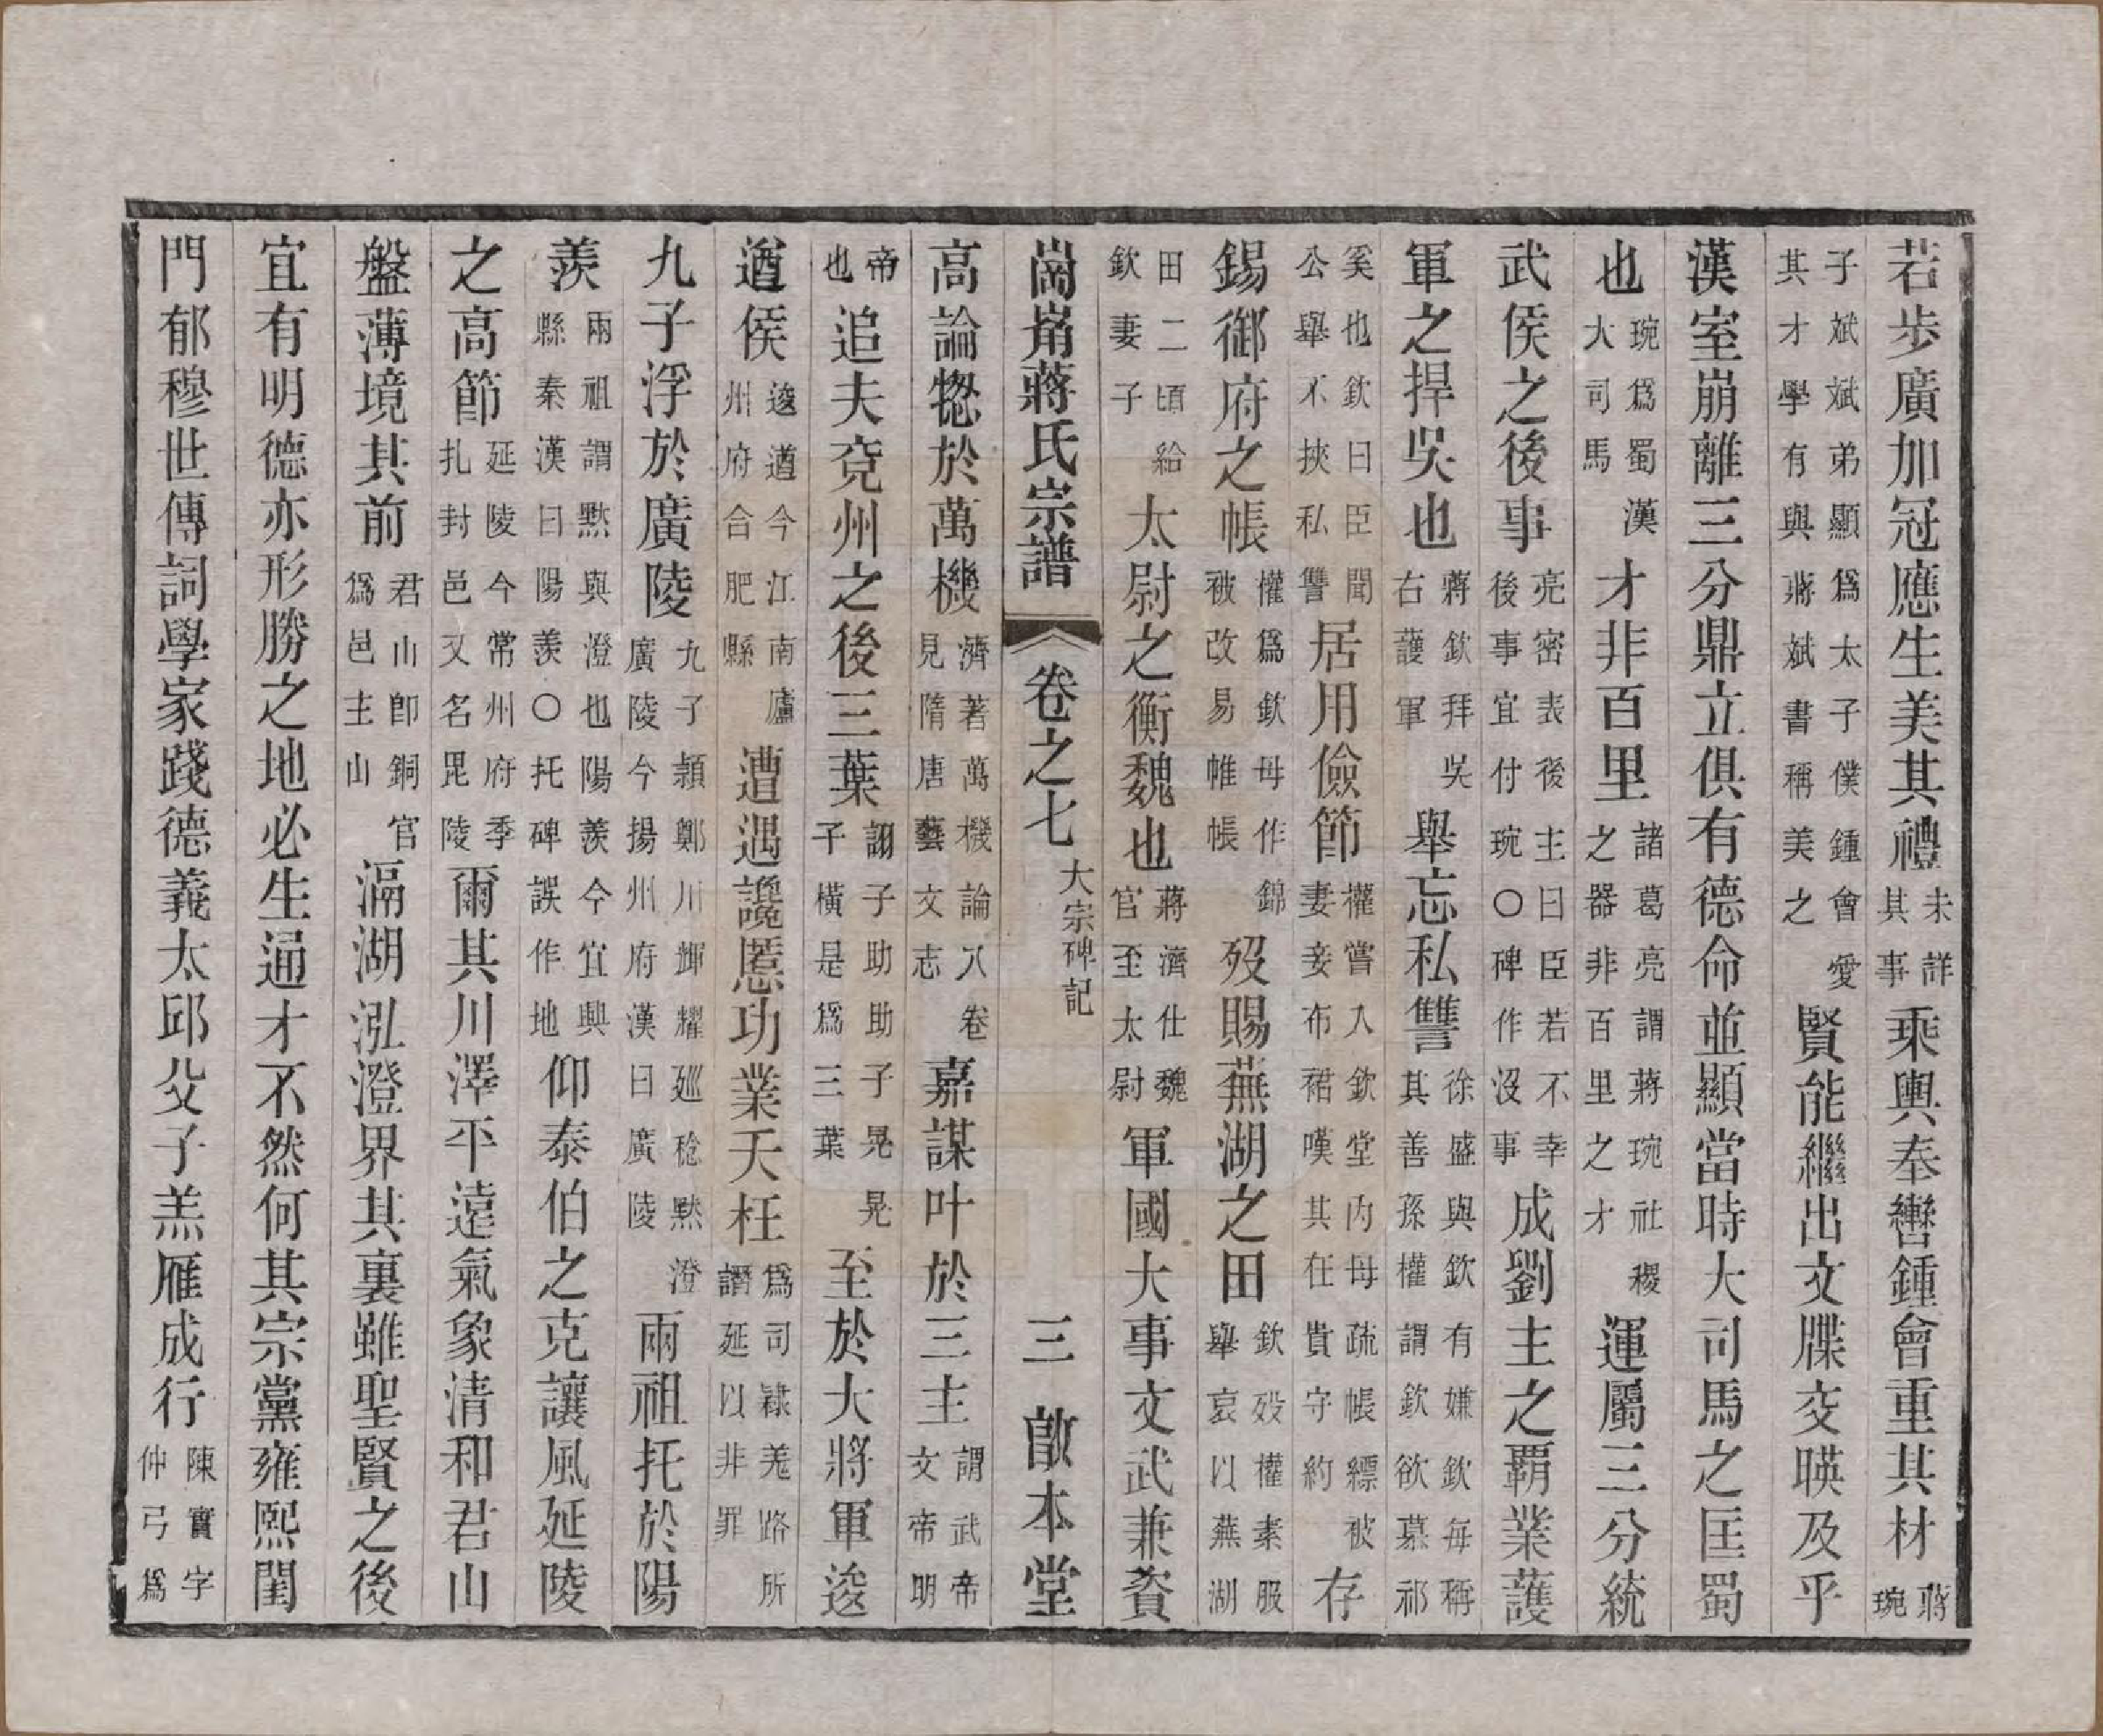 若歩廣加冠應生美其禮未詳其事乘輿奉轡鍾會重其材蔣琬
子斌斌弟顯爲太子僕鍾會愛其才學有與蔣斌書稱美之賢能繼出文牒交暎及乎
漢室崩離三分鼎立俱有德命並顯當時大司馬之匡蜀
也琬爲蜀漢大司馬才非百里諸葛亮謂蔣琬社稷之器非百里之才運屬三分統
武侯之後事亮密表後主曰臣若不幸後事宜付琬○碑作沒事成劉主之覇業護
軍之捍吳也蔣欽拜吳右護軍舉忘私讐徐盛與欽有嫌欽每稱其善孫權謂欽欲慕祁
奚也欽曰臣聞公舉不挾私讐居用儉節權嘗入欽堂內母疏帳縹被妻妾布裙嘆其在貴守約存
錫御府之帳權爲欽母作錦被改易帷帳歿賜蕪湖之田欽歿權素服舉哀以蕪湖
田二頃給欽妻子太尉之衡魏也蔣濟仕魏官至太尉軍國大事文武兼資
崗崩蔣氏宗譜 卷之七 大宗碑記 三 啟本堂
高論惣於萬機濟著萬機論八卷見隋唐藝文志嘉謀叶於三主謂武帝文帝明
帝也追夫兗州之後三葉詡子助助子晃晃子橫是爲三葉至於大將軍逡
遒侯逡遒今江南廬州府合肥縣遭遇讒慝功業夭枉爲司隷羗路所譖延以非罪
九子浮於廣陵九子穎鄭川輝耀廵稔黙澄廣陵今揚州府漢曰廣陵兩祖托於陽
羨兩祖謂黙與澄也陽羨今宜興縣秦漢曰陽羨○托碑誤作地仰泰伯之克讓風延陵
之高節延陵今常州府季扎封邑又名毘陵爾其川澤平遠氣象清和君山
盤薄境其前君山卽銅官爲邑主山滆湖泓澄界其裏雖聖賢之後
宜有明德亦形勝之地必生通才不然何其宗黨雍熙閨
門郁穆世傳詞學家踐德義太邱父子羔雁成行陳實字仲弓爲